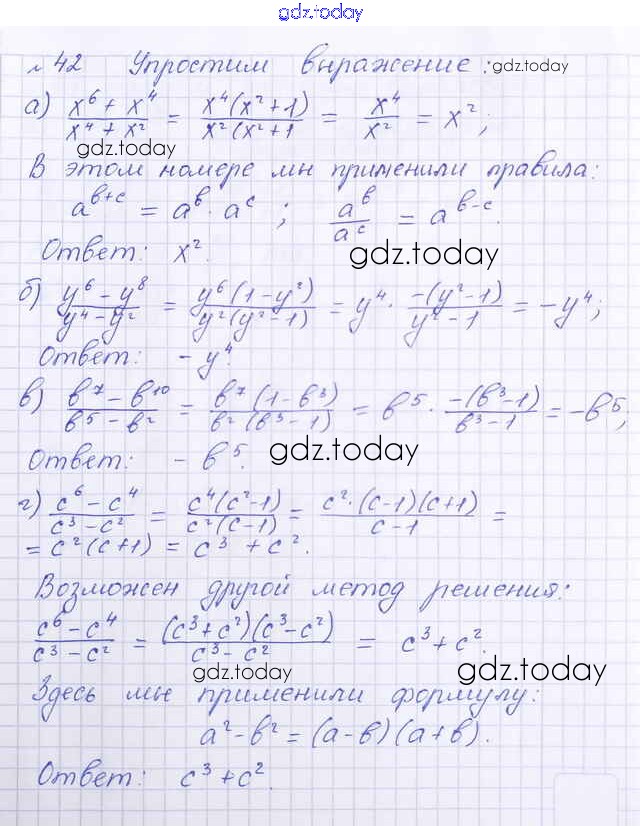 gdz.today
№ 42 Упростим выражение: gdz.today
а) (x⁶ + x⁴)/(x⁴ + x²) = (x⁴(x²+1))/(x²(x²+1) = x⁴/x² = x²;
gdz.today
В этом номере мы применили правила:
a^(b+c) = a^b · a^c ; a^b/a^c = a^(b-c).
Ответ: x². gdz.today
б) (y⁶ - y⁸)/(y⁴ - y²) = (y⁶(1-y²))/(y²(y²-1)) = y⁴ · (-(y²-1))/(y²-1) = -y⁴;
Ответ: - y⁴.
в) (b⁷ - b¹⁰)/(b⁵ - b²) = (b⁷(1-b³))/(b²(b³-1)) = b⁵ · (-(b³-1))/(b³-1) = -b⁵;
Ответ: - b⁵. gdz.today
г) (c⁶ - c⁴)/(c³ - c²) = (c⁴(c²-1))/(c²(c-1)) = (c²·(c-1)(c+1))/(c-1) =
= c²(c+1) = c³ + c².
Возможен другой метод решения:
(c⁶ - c⁴)/(c³ - c²) = ((c³+c²)(c³-c²))/(c³ - c²) = c³ + c².
gdz.today
Здесь мы применили формулу:
a² - b² = (a - b)(a + b).
Ответ: c³ + c².